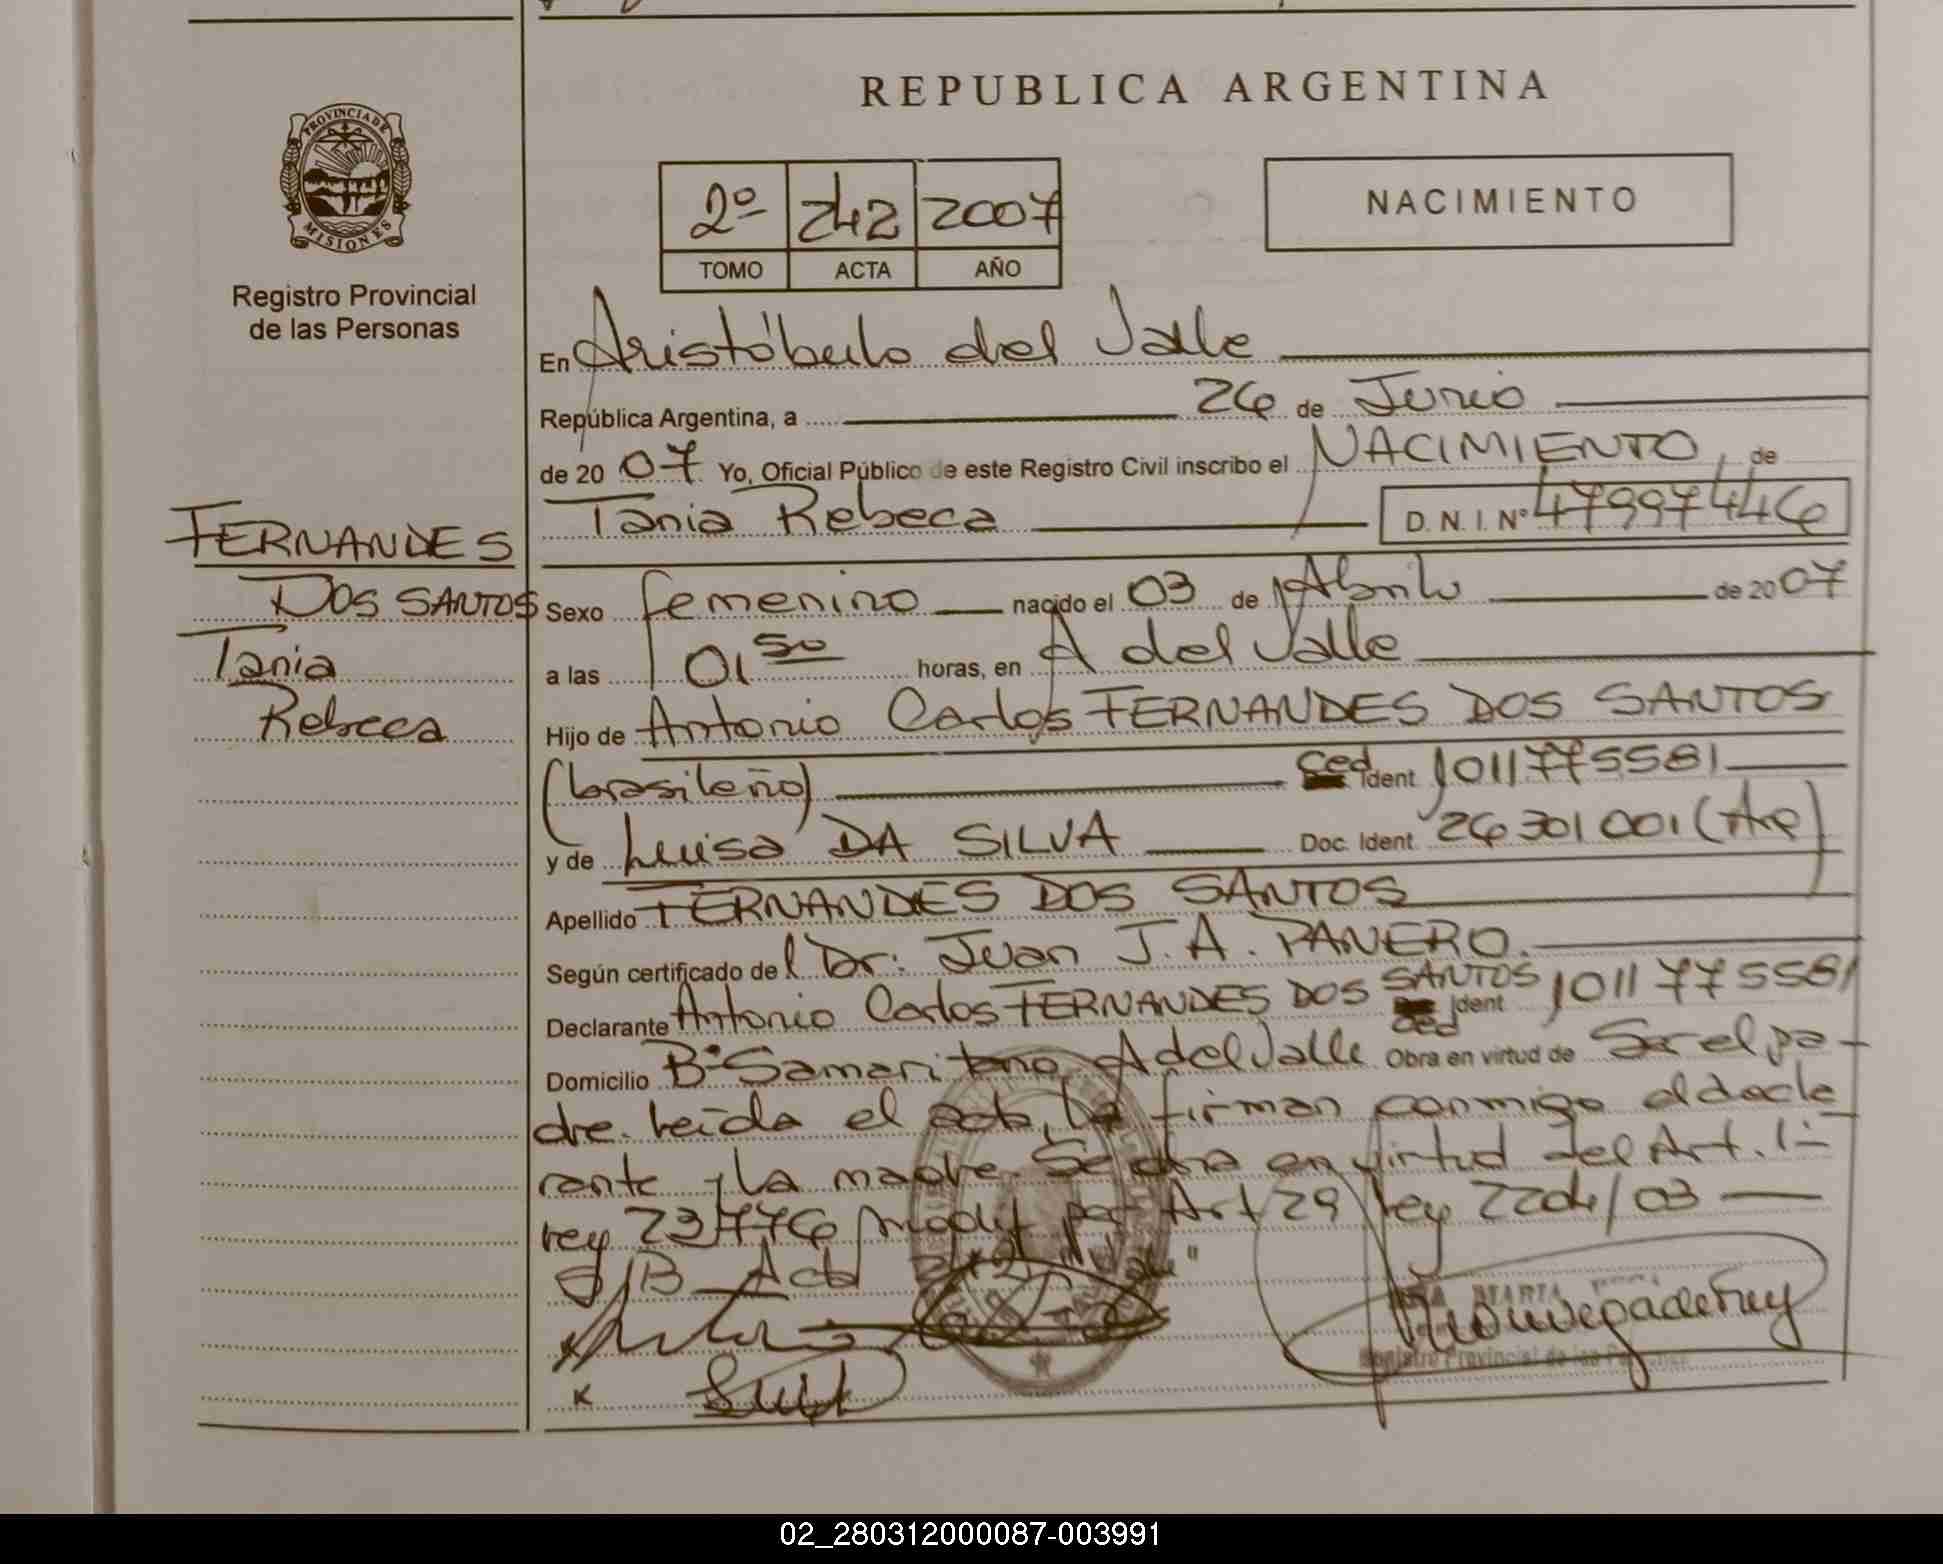 REPUBLICA ARGENTINA
PROVINCIA DE MISIONES
Registro Provincial
de las Personas
2º 242 2007
TOMO ACTA AÑO
NACIMIENTO
En Aristóbulo del Valle
República Argentina, a 26 de Junio
de 2007 Yo, Oficial Público de este Registro Civil inscribo el NACIMIENTO, de
Tania Rebeca D. N. I. Nº 47997446
FERNANDES
DOS SANTOS
Tania
Rebeca
Sexo femenino nacido el 03 de Abril de 2007
a las 01 50 horas, en A del Valle
Hijo de Antonio Carlos FERNANDES DOS SANTOS
(brasileño) Ced Ident 1011775581
y de Luisa DA SILVA Doc. Ident. 26301001 (Arg)
Apellido FERNANDES DOS SANTOS
Según certificado del Dr. Juan J. A. PANERO.
Declarante Antonio Carlos FERNANDES DOS SANTOS ced Ident 1011775581
Domicilio Bº Samaritano, A del Valle Obra en virtud de Ser el pa-
dre. Leída el acta, la firman conmigo el decla
rante y la madre. Se obra en virtud del Art. 1º
Ley 23776 Modif por Art 29 Ley 2204/03
Acta 242
Registro Provincial de las Personas
02_280312000087-003991